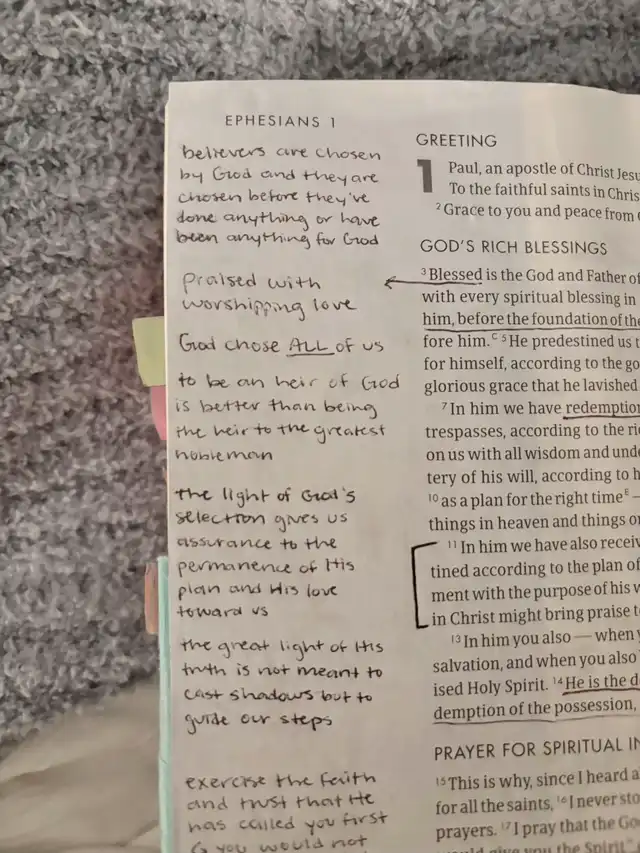 EPHESIANS 1
believers are chosen
by God and they are
chosen before they've
done anything or have
been anything for God
praised with
worshipping love
God chose ALL of us
to be an heir of God
is better than being
the heir to the greatest
nobleman
the light of God's
selection gives us
assurance to the
permanence of His
plan and His love
toward us
the great light of His
truth is not meant to
cast shadows but to
guide our steps
exercise the faith
and trust that He
has called you first
you would not
GREETING
1 Paul, an apostle of Christ Jesu
To the faithful saints in Chris
2 Grace to you and peace from
GOD'S RICH BLESSINGS
3 Blessed is the God and Father of
with every spiritual blessing in
him, before the foundation of the
fore him.C 5 He predestined us t
for himself, according to the go
glorious grace that he lavished
7 In him we have redemption
trespasses, according to the ri
on us with all wisdom and unde
tery of his will, according to h
10 as a plan for the right timeE —
things in heaven and things o
11 In him we have also receiv
tined according to the plan of
ment with the purpose of his w
in Christ might bring praise t
13 In him you also — when y
salvation, and when you also
ised Holy Spirit. 14 He is the d
demption of the possession,
PRAYER FOR SPIRITUAL IN
15 This is why, since I heard a
for all the saints, 16 I never sto
prayers. 17 I pray that the Go
would give you the Spirit